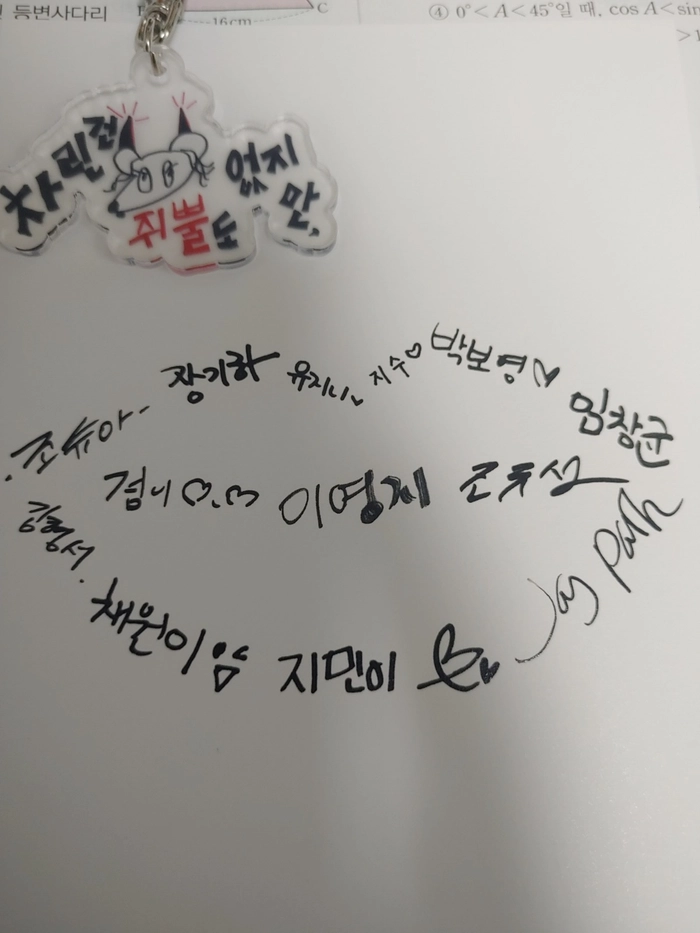 등변사다리
16cm
C
④ 0°<A<45°일 때, cos A<sin
>1
차린건
없지만,
쥐뿔도
장기하
유지니
지수♡
박보영♡
임창균
조슈아-
겸이♡.♡
이영지
강형서.
Jay park
채원이
지민이